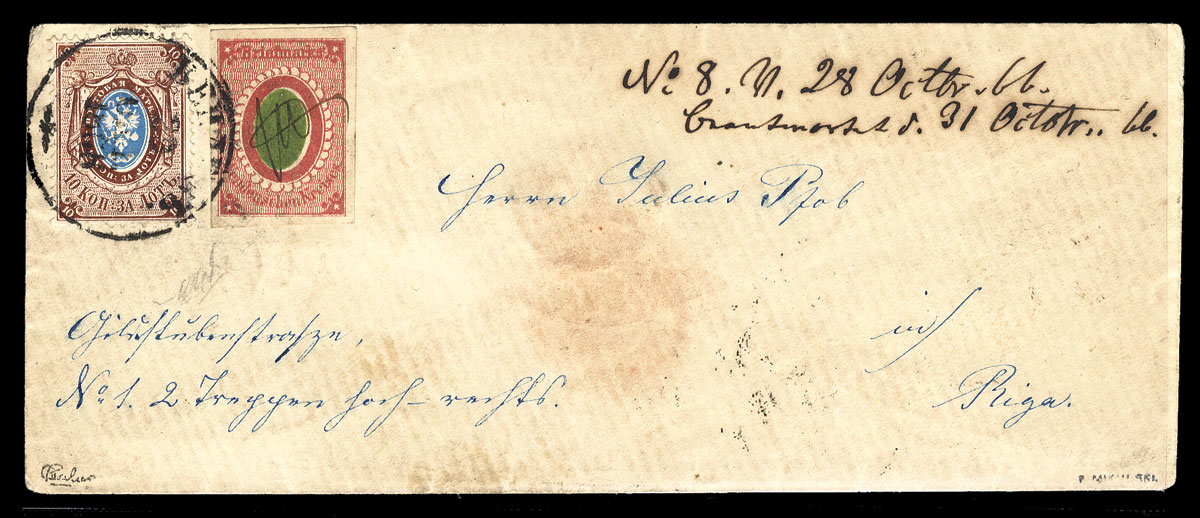 ПОЧТОВАЯ МАРКА
КОП: ЗА ЛОТЪ
10 КОП: ЗА ЛОТЪ
No. 8. N. 28 Octbr. 66.
beantwortet d. 31 Octobr. 66.
Herrn Julius Pfab
in
Riga.
Gildstubenstrasze,
No 1. 2 Treppen hoch - rechts.